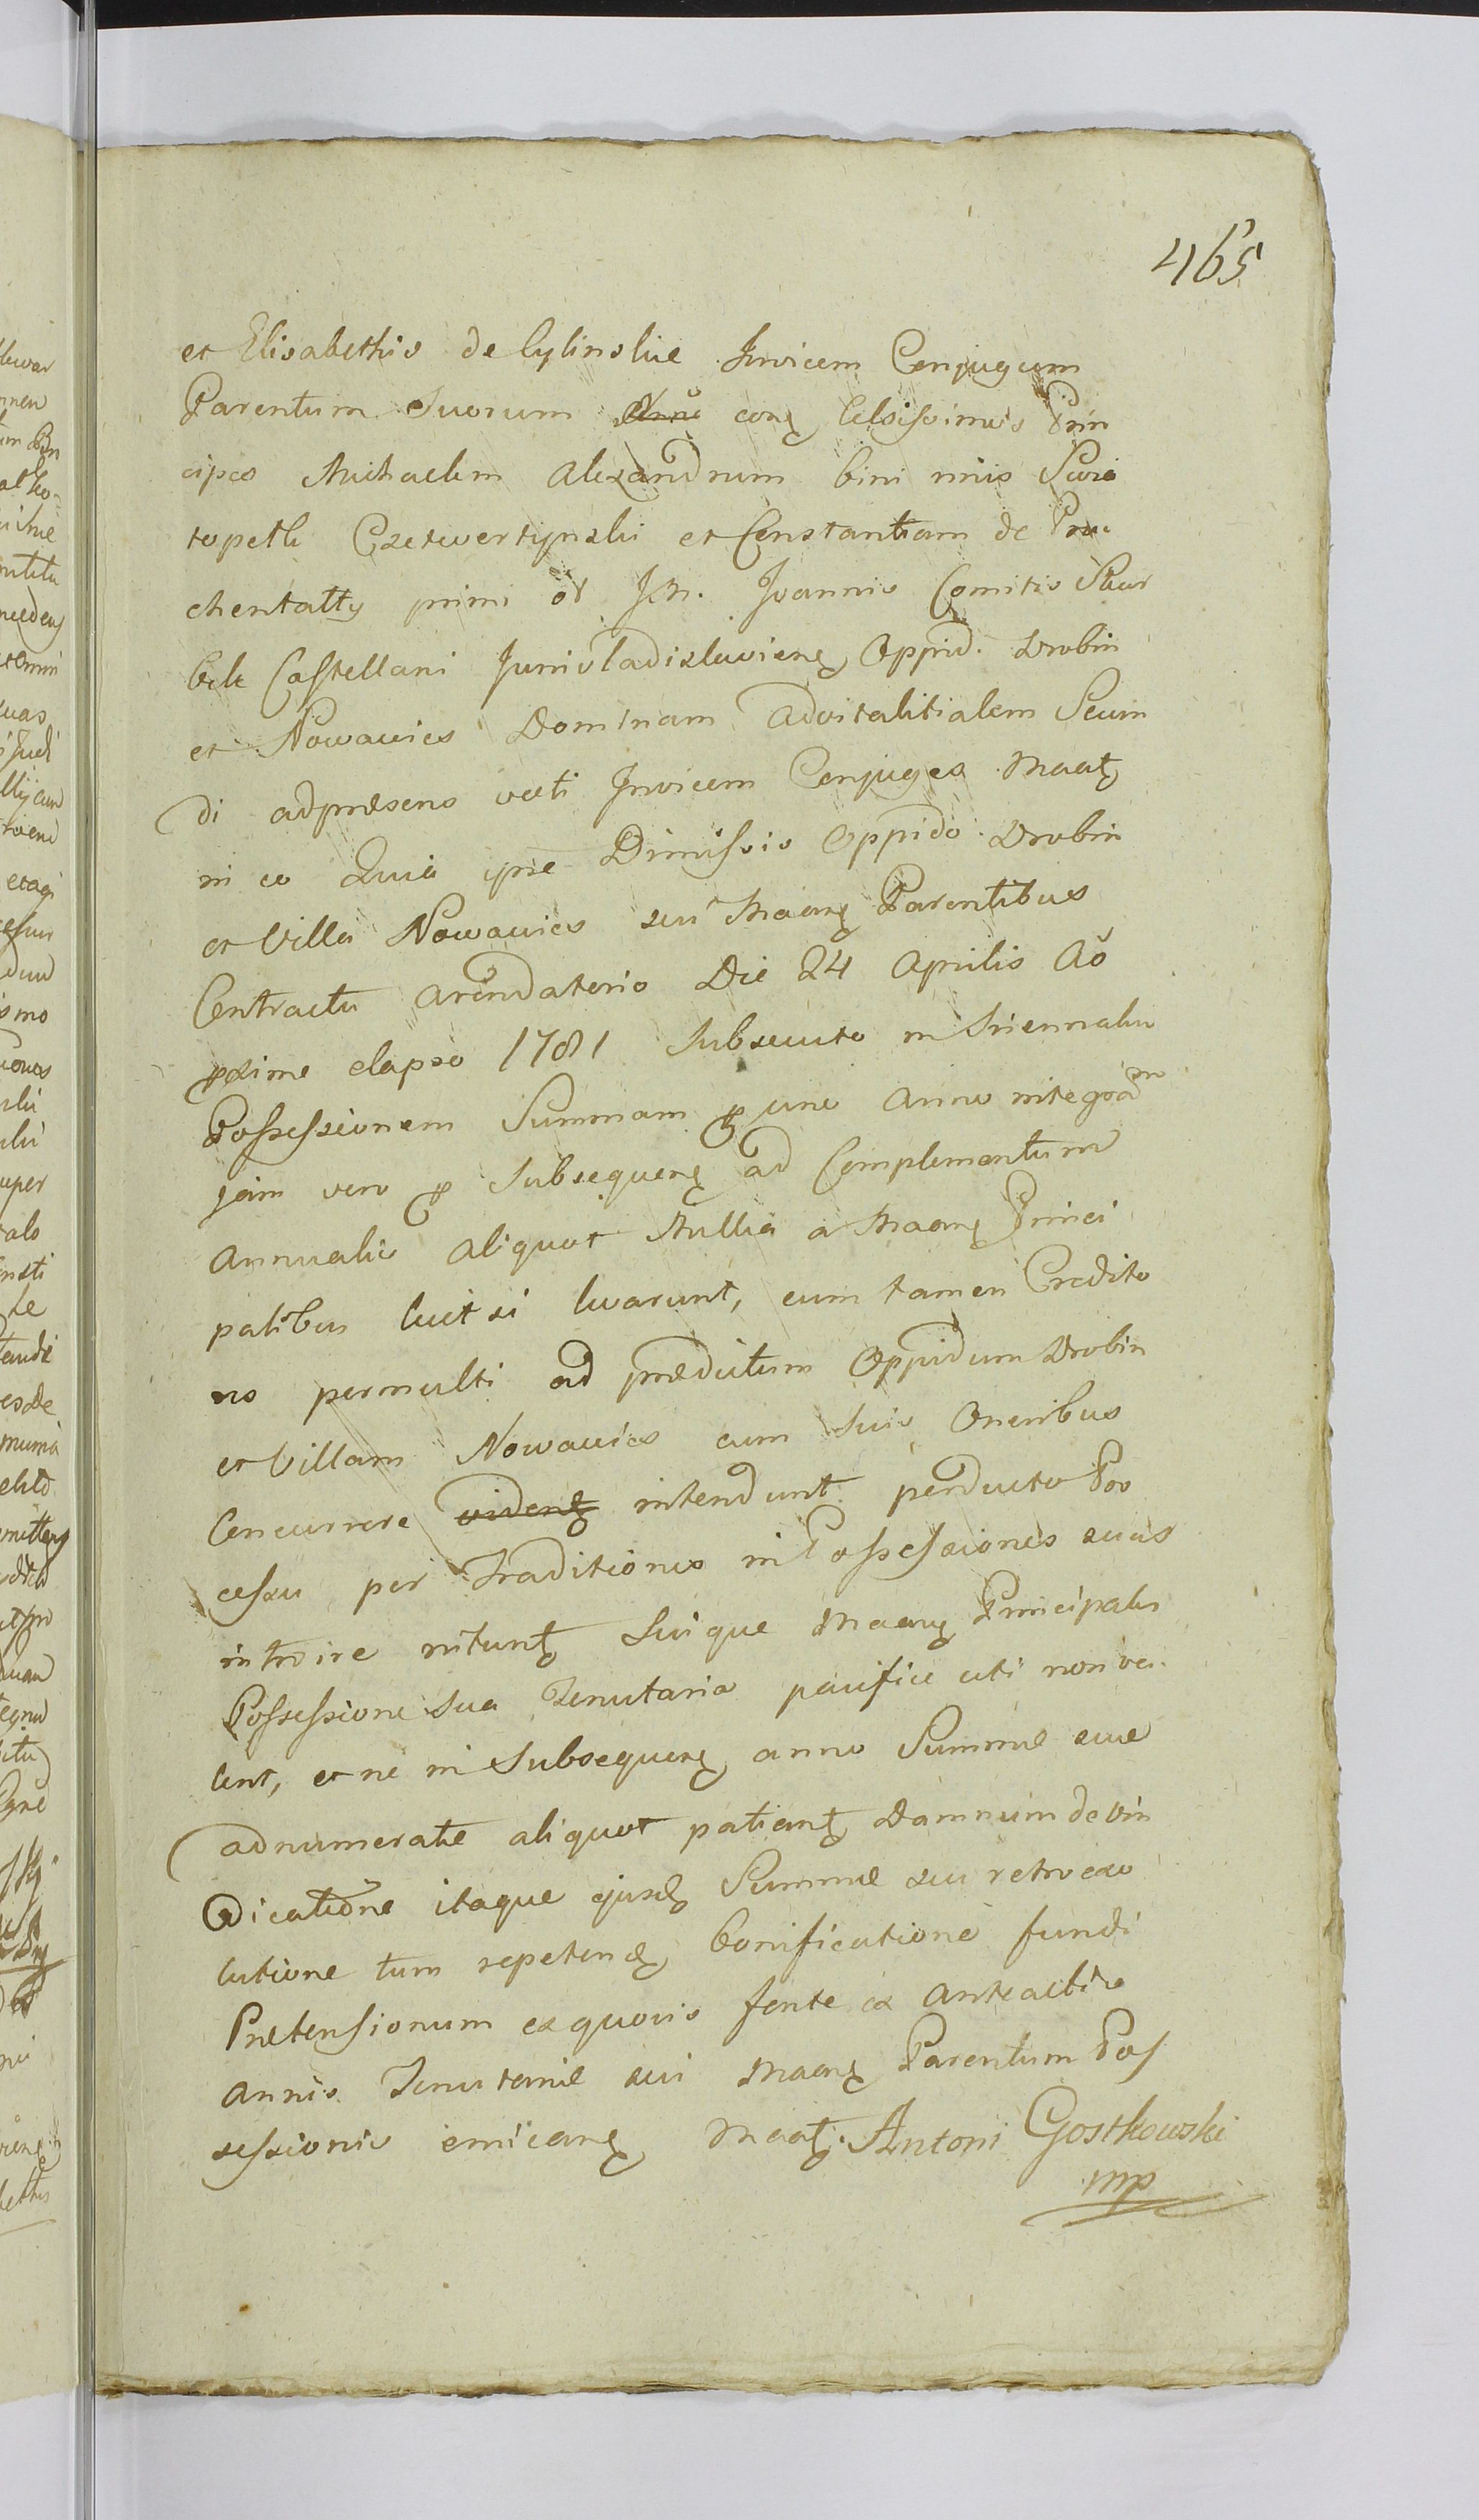 465
et Elisabethis de Cylinskie Invicem Conjugum
Parentum Suorum cong Celsissimos Prin
cipes Michaelem Alexandrum bini nnis Swia
topelk Czetwertynski et Constantiam de Pru
chentalty primi ol Jch. Joannis Comitis Skar
bek Castellani Junivladislaviens Oppid. Drobin
et Nowawies Dominam advitalitialem Secun
di adpræsens voti Invicem Conjuges Maat
in eo Quia ipse Dimissis Oppido Drobin
et Villa Nowawies sui Maang Parentibus
Contractu arendatorio Die 24 Aprilis Aõ
pxime elapso 1781 Subsecuto in triennalem
Possessionem Summam p uno Anno integram
jam vero p Subsequeng ad Complementum
Annualis aliquot Millia a Maang Princi
palibus Suis si levarunt, cum tamen Credito
res permulti ad prædictum Oppidum Drobin
et Villam Nowawies cum Suis Oneribus
Concurrere videnţ intendunt perducto Pro
cessu per Traditiones in Possessiones suas
introire nitunt Suique Maang Principales
Possessione Sua Tenutaria pacifice uti non va
lent, et ne in Subsequeng anno Summæ suæ
adnumeratæ aliquot patiant Damnum de Vin
dicatione itaque ejusd Summæ seu retroexo
lutione tum repetend bonificatione fundi
Prætensionum ex quovis fonte ex Anteactis
Annis Tenutariæ sui Maang Parentum Pos
sessionis emicang Maat. Antoni Gostkowski
mp